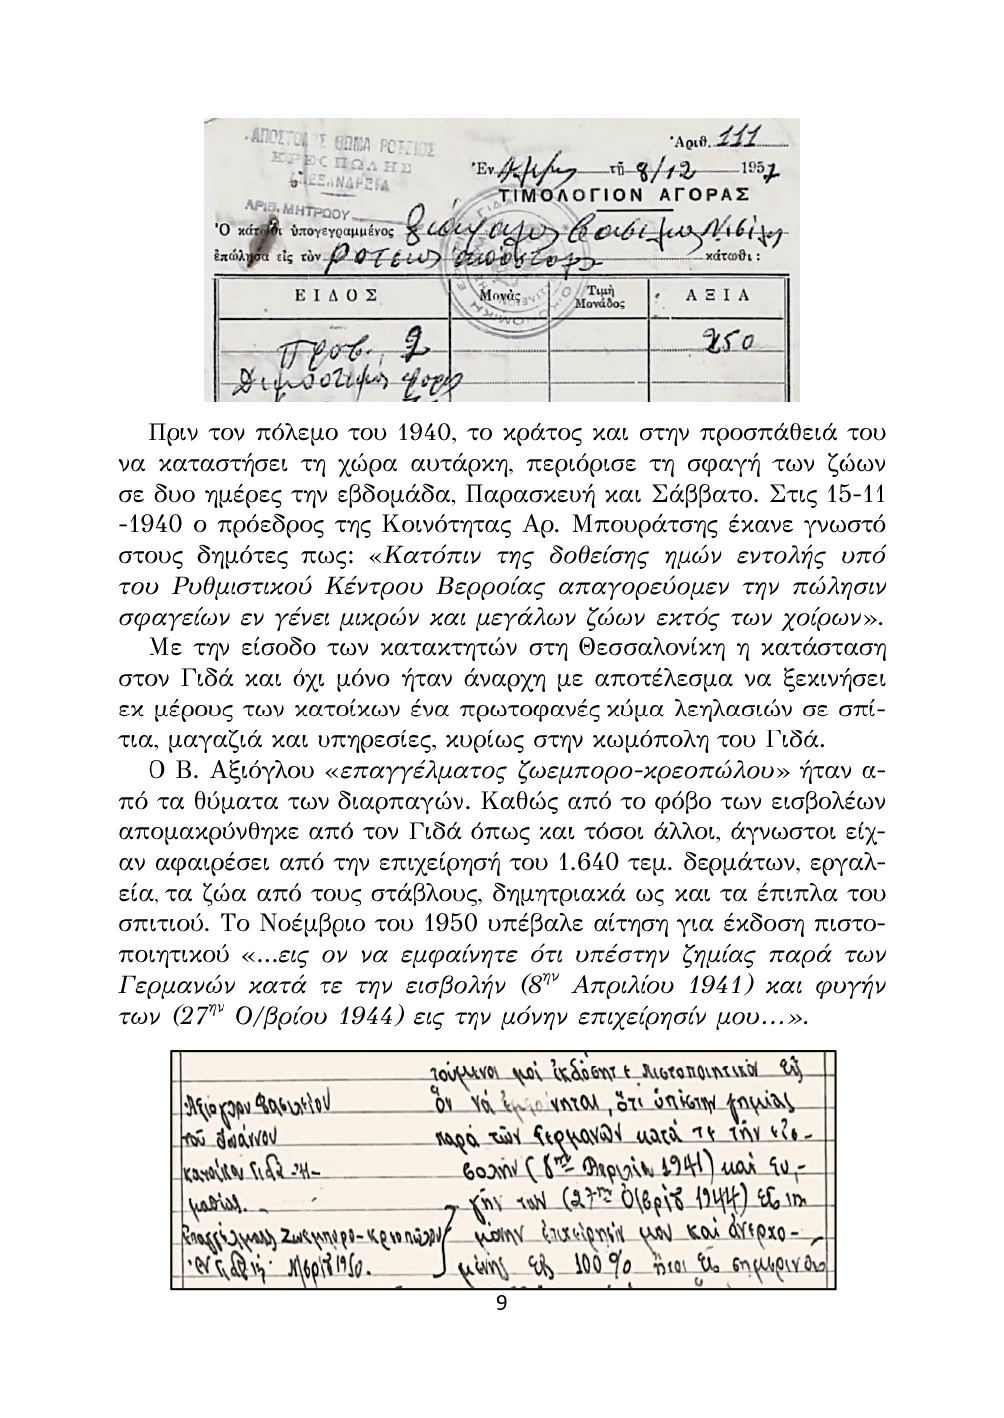 ΑΠΟΣΤΟΛΟΣ ΘΩΜΑ ΡΟΤΣΙΟΣ
ΚΡΕΟΠΩΛΗΣ
ΑΛΕΞΑΝΔΡΕΙΑ
ΑΡΙΘ. ΜΗΤΡΩΟΥ
Ἀριθ. 111
Ἐν τῇ 8/12 1957
ΤΙΜΟΛΟΓΙΟΝ ΑΓΟΡΑΣ
Ὁ κάτωθι ὑπογεγραμμένος
ἐπώλησα εἰς τὸν κάτωθι :
ΕΙΔΟΣ Μονὰς Τιμὴ Μονάδος ΑΞΙΑ
Προβ. 2 250
Πριν τον πόλεμο του 1940, το κράτος και στην προσπάθειά του
να καταστήσει τη χώρα αυτάρκη, περιόρισε τη σφαγή των ζώων
σε δυο ημέρες την εβδομάδα, Παρασκευή και Σάββατο. Στις 15-11
-1940 ο πρόεδρος της Κοινότητας Αρ. Μπουράτσης έκανε γνωστό
στους δημότες πως: «Κατόπιν της δοθείσης ημών εντολής υπό
του Ρυθμιστικού Κέντρου Βερροίας απαγορεύομεν την πώλησιν
σφαγείων εν γένει μικρών και μεγάλων ζώων εκτός των χοίρων».
Με την είσοδο των κατακτητών στη Θεσσαλονίκη η κατάσταση
στον Γιδά και όχι μόνο ήταν άναρχη με αποτέλεσμα να ξεκινήσει
εκ μέρους των κατοίκων ένα πρωτοφανές κύμα λεηλασιών σε σπί-
τια, μαγαζιά και υπηρεσίες, κυρίως στην κωμόπολη του Γιδά.
Ο Β. Αξιόγλου «επαγγέλματος ζωεμπορο-κρεοπώλου» ήταν α-
πό τα θύματα των διαρπαγών. Καθώς από το φόβο των εισβολέων
απομακρύνθηκε από τον Γιδά όπως και τόσοι άλλοι, άγνωστοι είχ-
αν αφαιρέσει από την επιχείρησή του 1.640 τεμ. δερμάτων, εργαλ-
εία, τα ζώα από τους στάβλους, δημητριακά ως και τα έπιπλα του
σπιτιού. Το Νοέμβριο του 1950 υπέβαλε αίτηση για έκδοση πιστο-
ποιητικού «...εις ον να εμφαίνητε ότι υπέστην ζημίας παρά των
Γερμανών κατά τε την εισβολήν (8ην Απριλίου 1941) και φυγήν
των (27ην Ο/βρίου 1944) εις την μόνην επιχείρησίν μου…».
τούμενοι μοί ἐκδόσητε πιστοποιητικὸν εἰς
Ἀξιόγλου Βασιλείου ὃν νὰ ἐμφαίνηται, ὅτι ὑπέστην ζημίας
τοῦ Ἰωάννου παρὰ τῶν Γερμανῶν κατά τε τὴν εἰσ-
κατοίκου Γιδᾶ Ἠ- βολὴν (8ην Ἀπριλίου 1941) καὶ φυ-
μαθίας. γὴν των (27ην Ὀ/βρίου 1944) εἰς τὴν
Ἐπαγγέλματος Ζωεμπορο-κρεοπώλου μόνην ἐπιχείρησίν μου καὶ ἀνερχο-
Ἐν Γιδᾷ τῇ Ν/βρίου 1950. μένης εἰς 100% ἤτοι εἰς σημερινὰς
9